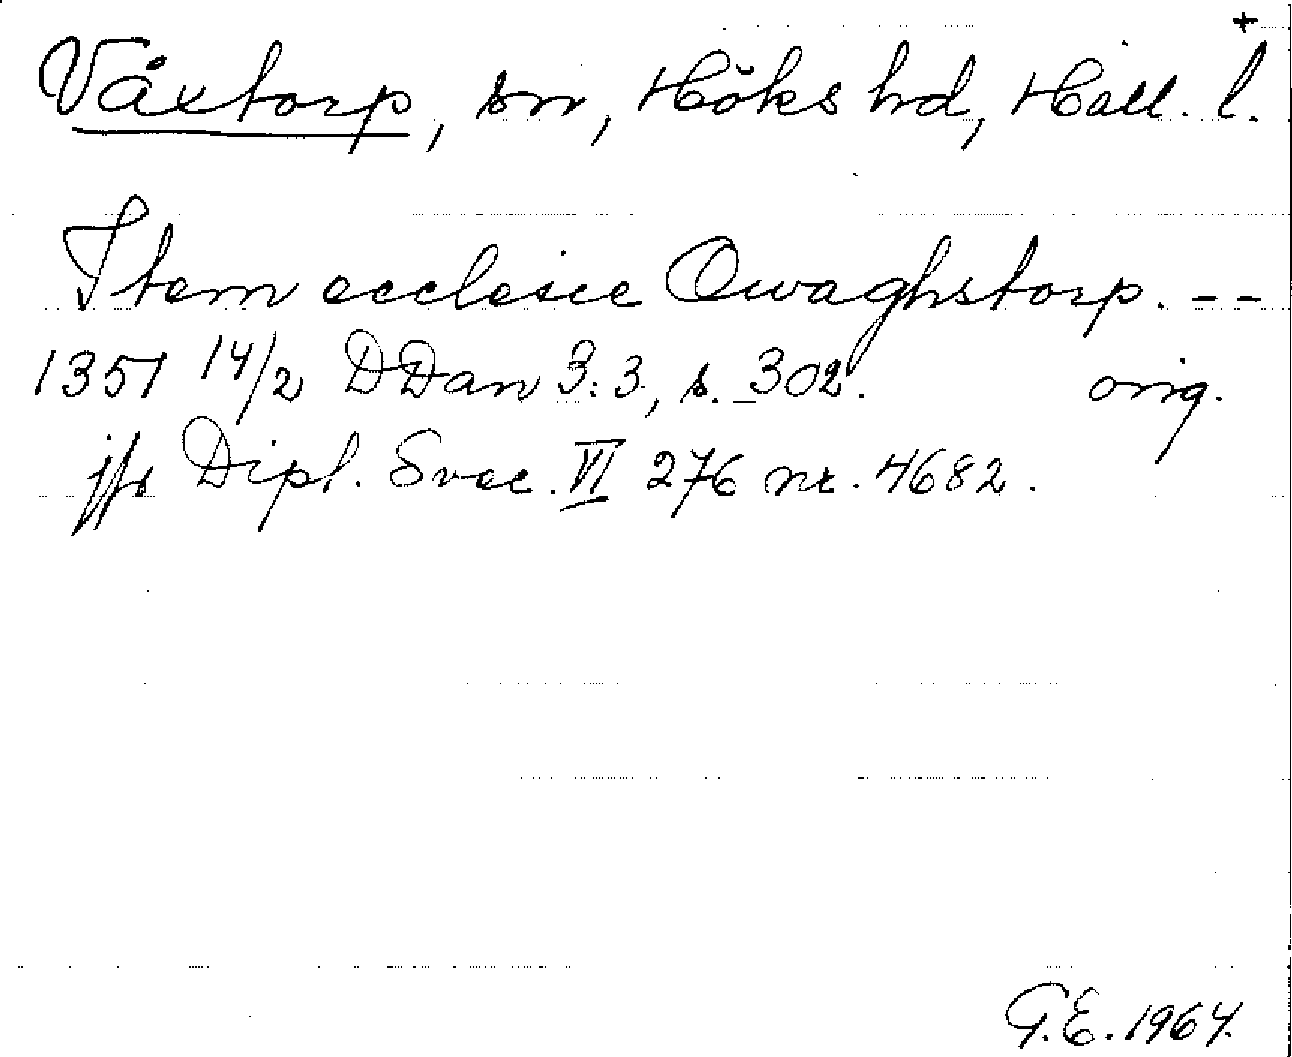 +
Våxtorp, sn, Höks hd, Hall. l.
Item ecclesie Owaghstorp. --
1351 14/2 DDan 3:3, s. 302. orig.
jfr Dipl. Svec. VI 276 nr. 4682.
G.E. 1964.